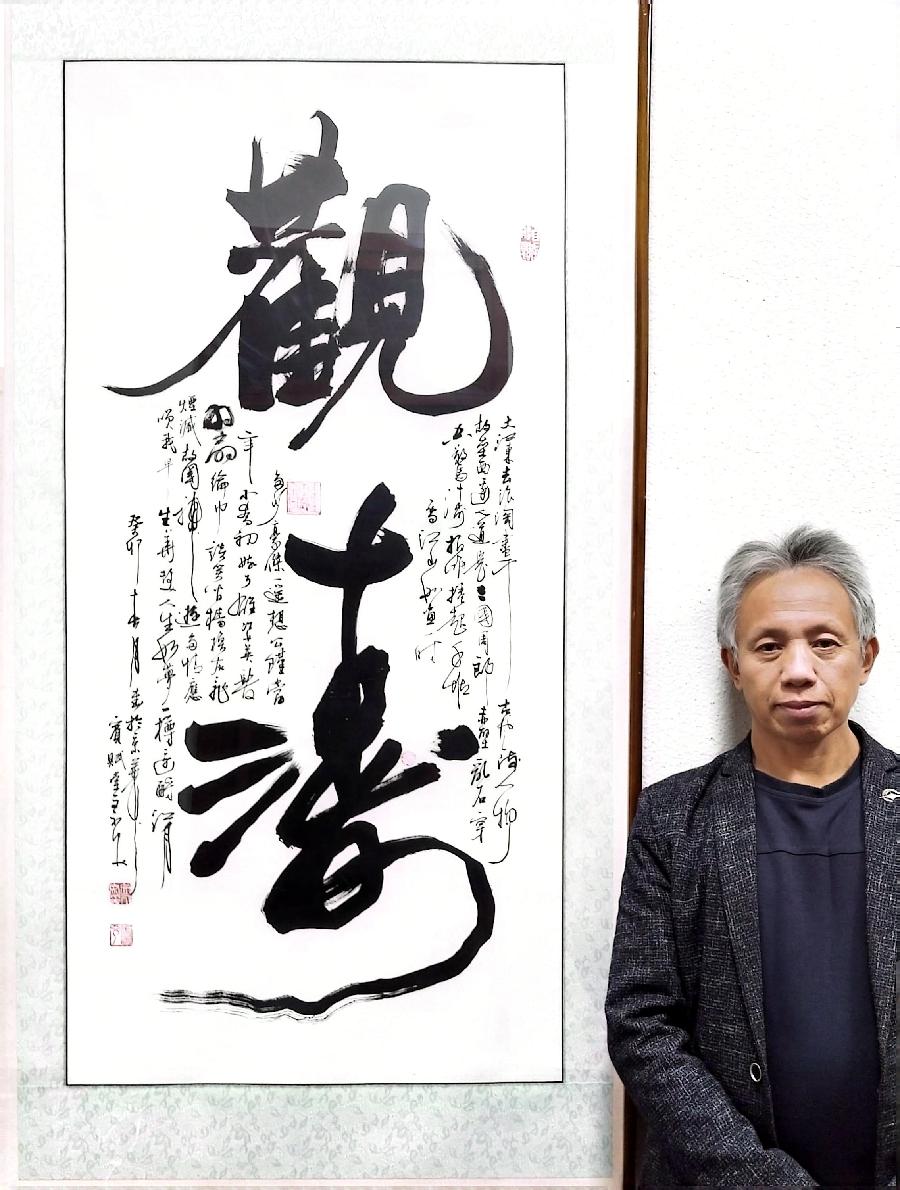 觀濤
大江東去浪淘盡千古風流人物
故壘西邊人道是三國周郎赤壁亂石穿
空驚濤拍岸捲起千堆
雪江山如畫一時
多少豪傑遙想公瑾當
年小喬初嫁了雄姿英發
羽扇綸巾談笑間檣櫓灰飛
煙滅故國神遊多情應
笑我早生華髮人生如夢一樽還酹江月
癸卯十月書於京華
賓賦堂